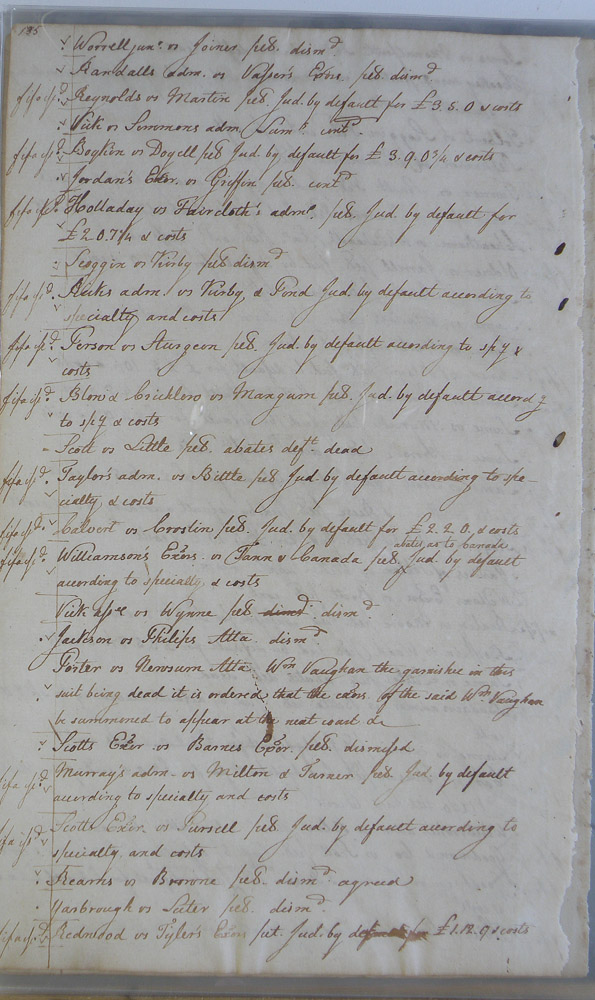 185
Worrell junr. vs Joiner pet. dismd
Randalls adm. vs Vasser's Exors. pet. dismd
fi fa isd. Reynolds vs Martin pet. Jud. by default for £3.5.0 & costs
Vick vs Simmons adm. Sums. contd.
fi fa isd. Boykin vs Doyell pet Jud. by default for £3.9.0¾ & costs
Jordan's Exor. vs Griffin pet. contd
fi fa isd. Holladay vs Faircloth's admr. pet. Jud. by default for
£2.0.7¼ & costs
Scoggin vs Kirby pet dismd
fi fa isd. Hicks adm. vs Kirby & Pond Jud. by default according to
specialty and costs
fi fa isd. Person vs Sturgeon pet. Jud. by default according to spy &
costs
fi fa isd. Blow & Cricklow vs Mangum pet. Jud. by default accordg
to spy & costs
Scott vs Little pet. abates deft. dead
fi fa isd. Taylor's adm. vs Bittle pet Jud by default according to spe-
cialty & costs
fi fa isd. Calvert vs Crostin pet. Jud. by default for £2.2.0. & costs
abates as to Canada
fi fa isd. Williamson's Exors. vs Fann & Canada pet. Jud. by default
according to specialty & costs
Vick assee vs Wynne pet dismd. dismd.
Jackson vs Philips Atta. dismd.
Porter vs Newsum Atta. Wm Vaughan the garnishee in this
suit being dead it is ordered that the exors. of the said Wm Vaughan
be summoned to appear at the next court &c
Scotts Exor. vs Barnes Exor. pet. dismissd
fi fa isd. Murray's adm. vs Milton & Turner pet Jud. by default
according to specialty and costs
fi fa isd. Scotts Exor. vs Pursell pet. Jud. by default according to
specialty and costs
Kearns vs Browne pet. dismd. agreed
Yarbrough vs Suter pet. dismd.
fi fa isd. Redwood vs Tyler's Exors pet. Jud. by default for £1.12.9 & costs